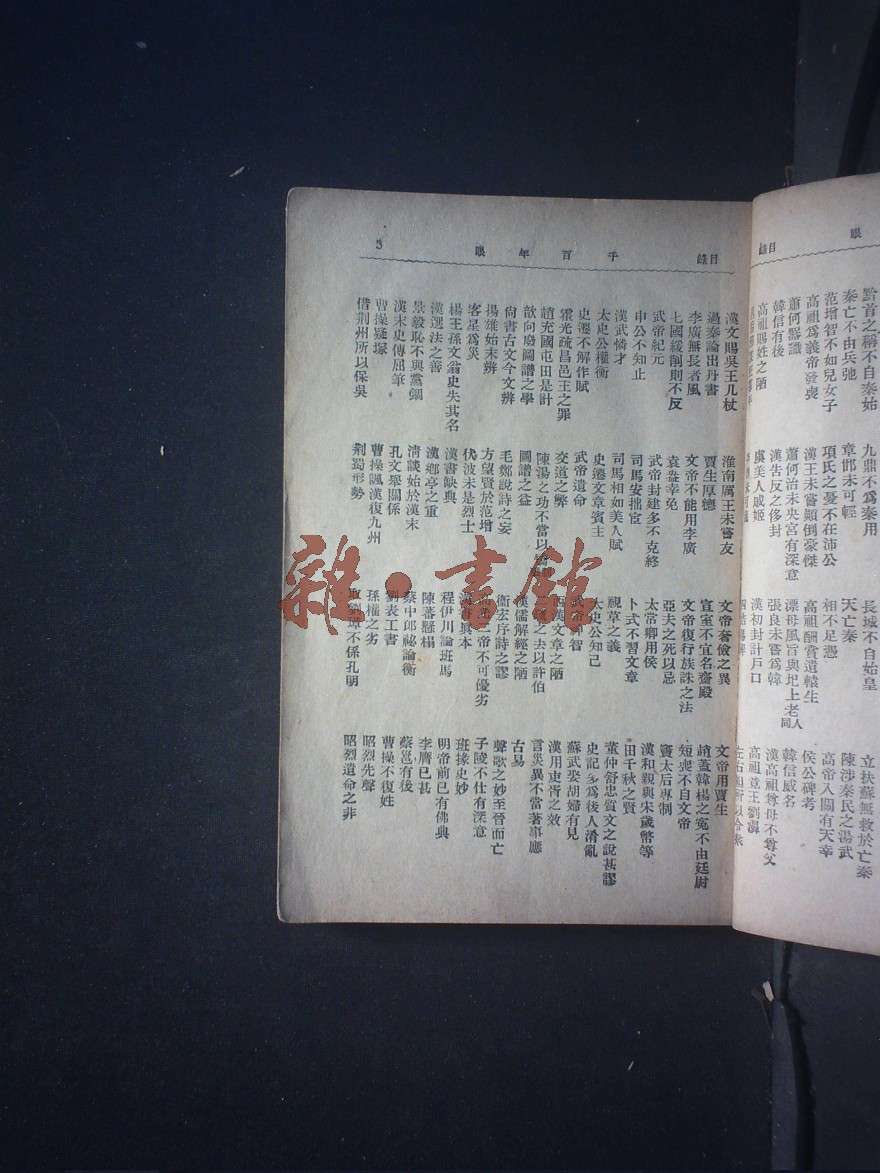 目錄
眼
黔首之稱不自秦始
秦亡不由兵弛
范增智不如兒女子
高祖爲義帝發喪
蕭何器識
韓信有後
高祖賜姓之陋
九鼎不爲秦用
章邯未可輕
項氏之憂不在沛公
漢王未嘗顛倒豪傑
蕭何治未央宮有深意
漢告反之侈封
虞美人戚姬
長城不自始皇
天亡秦
相不足憑
高祖酬賞遺轅生
漂母風旨與圯上老人同
張良未嘗爲韓
漢初封計戶口
立扶蘇無救於亡秦
陳涉秦民之湯武
高帝入關有天幸
侯公碑考
韓信威名
漢高祖尊母不尊父
高祖竟王劉濞
目錄
千百年眼
3
漢文賜吳王几杖
過秦論出丹書
李廣無長者風
七國緩削則不反
武帝紀元
申公不知止
漢武憐才
太史公權衡
史遷不解作賦
霍光疏昌邑王之罪
趙充國屯田是計
歆向廢圖譜之學
尙書古文今文辨
揚雄始末辨
客星爲災
楊王孫文翁史失其名
漢選法之善
景毅恥不與黨錮
漢末史傳屈筆
曹操疑塚
借荆州所以保吳
淮南厲王未嘗友
賈生厚德
文帝不能用李廣
袁盎幸免
武帝封建多不克終
司馬安拙宦
司馬相如美人賦
史遷文章賓主
武帝遺命
交道之弊
陳湯之功不當以
圖譜之益
毛鄭說詩之妄
方望賢於范增
伏波未是烈士
漢書缺典
漢鄉亭之重
淸談始於漢末
孔文舉關係
曹操諷漢復九州
荆蜀形勢
文帝奢儉之異
宣室不宜名齋殿
文帝復行族誅之法
亞夫之死以忌
太常卿用侯
卜式不習文章
視草之義
太史公知己
武帝神智
漢文章之陋
之去以許伯
漢儒解經之陋
衞宏序詩之謬
帝不可優劣
漢書眞本
程伊川論班馬
陳蕃懸榻
蔡中郎祕論衡
劉表工書
孫權之劣
取劉璋不係孔明
文帝用賈生
趙蓋韓楊之冤不由廷尉
短喪不自文帝
竇太后專制
漢和親與宋歲幣等
田千秋之賢
董仲舒忠質文之說甚謬
史記多爲後人淆亂
蘇武娶胡婦有見
漢用吏胥之效
言災異不當著事應
古易
聲歌之妙至晉而亡
子陵不仕有深意
班掾史妙
明帝前已有佛典
李膺已甚
蔡邕有後
曹操不復姓
昭烈先聲
昭烈遺命之非
雜·書館